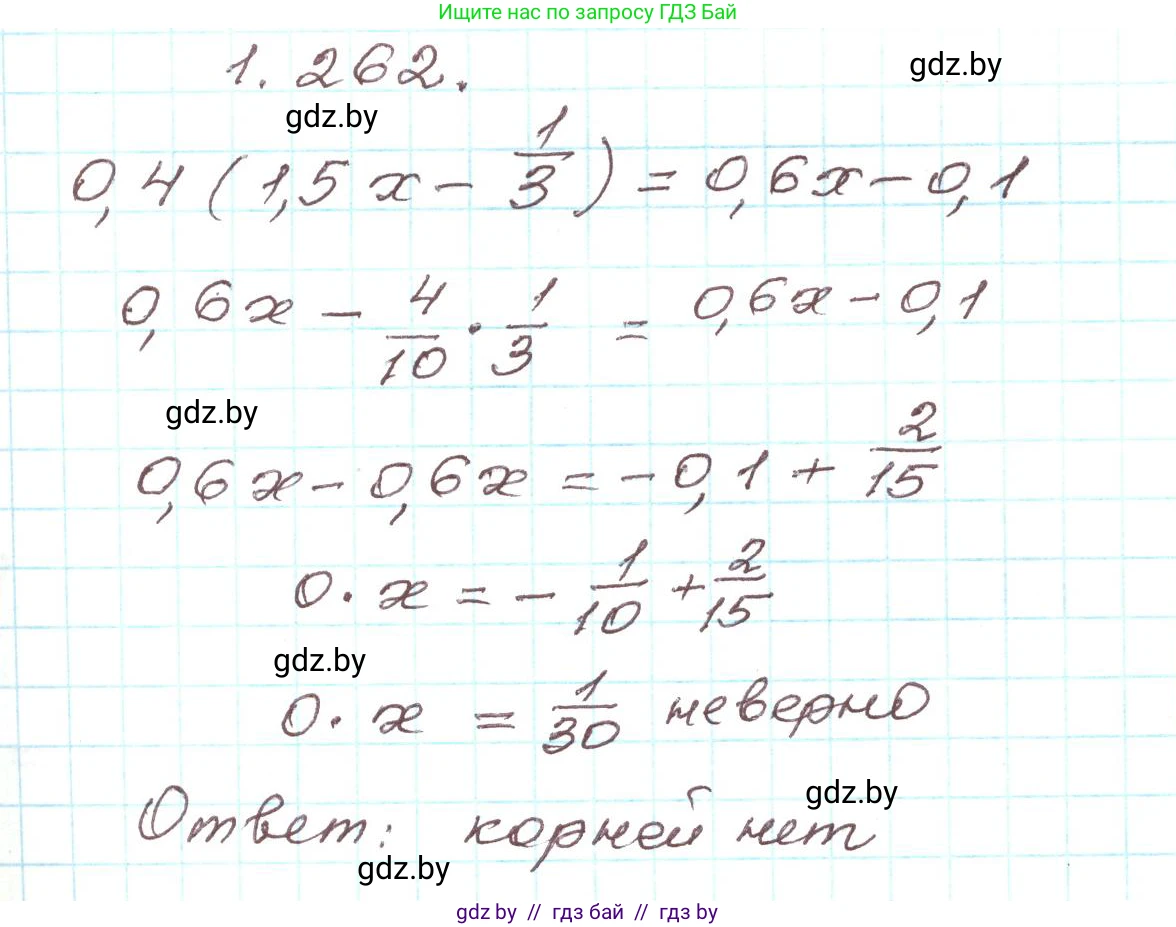 Ищите нас по запросу ГДЗ Бай
1.262.
gdz.by
gdz.by
0,4(1,5x - 1/3) = 0,6x - 0,1
0,6x - 4/10 · 1/3 = 0,6x - 0,1
gdz.by
0,6x - 0,6x = -0,1 + 2/15
0 · x = - 1/10 + 2/15
gdz.by
0 · x = 1/30 неверно
gdz.by
Ответ: корней нет
gdz.by
gdz.by // гдз бай // гдз by